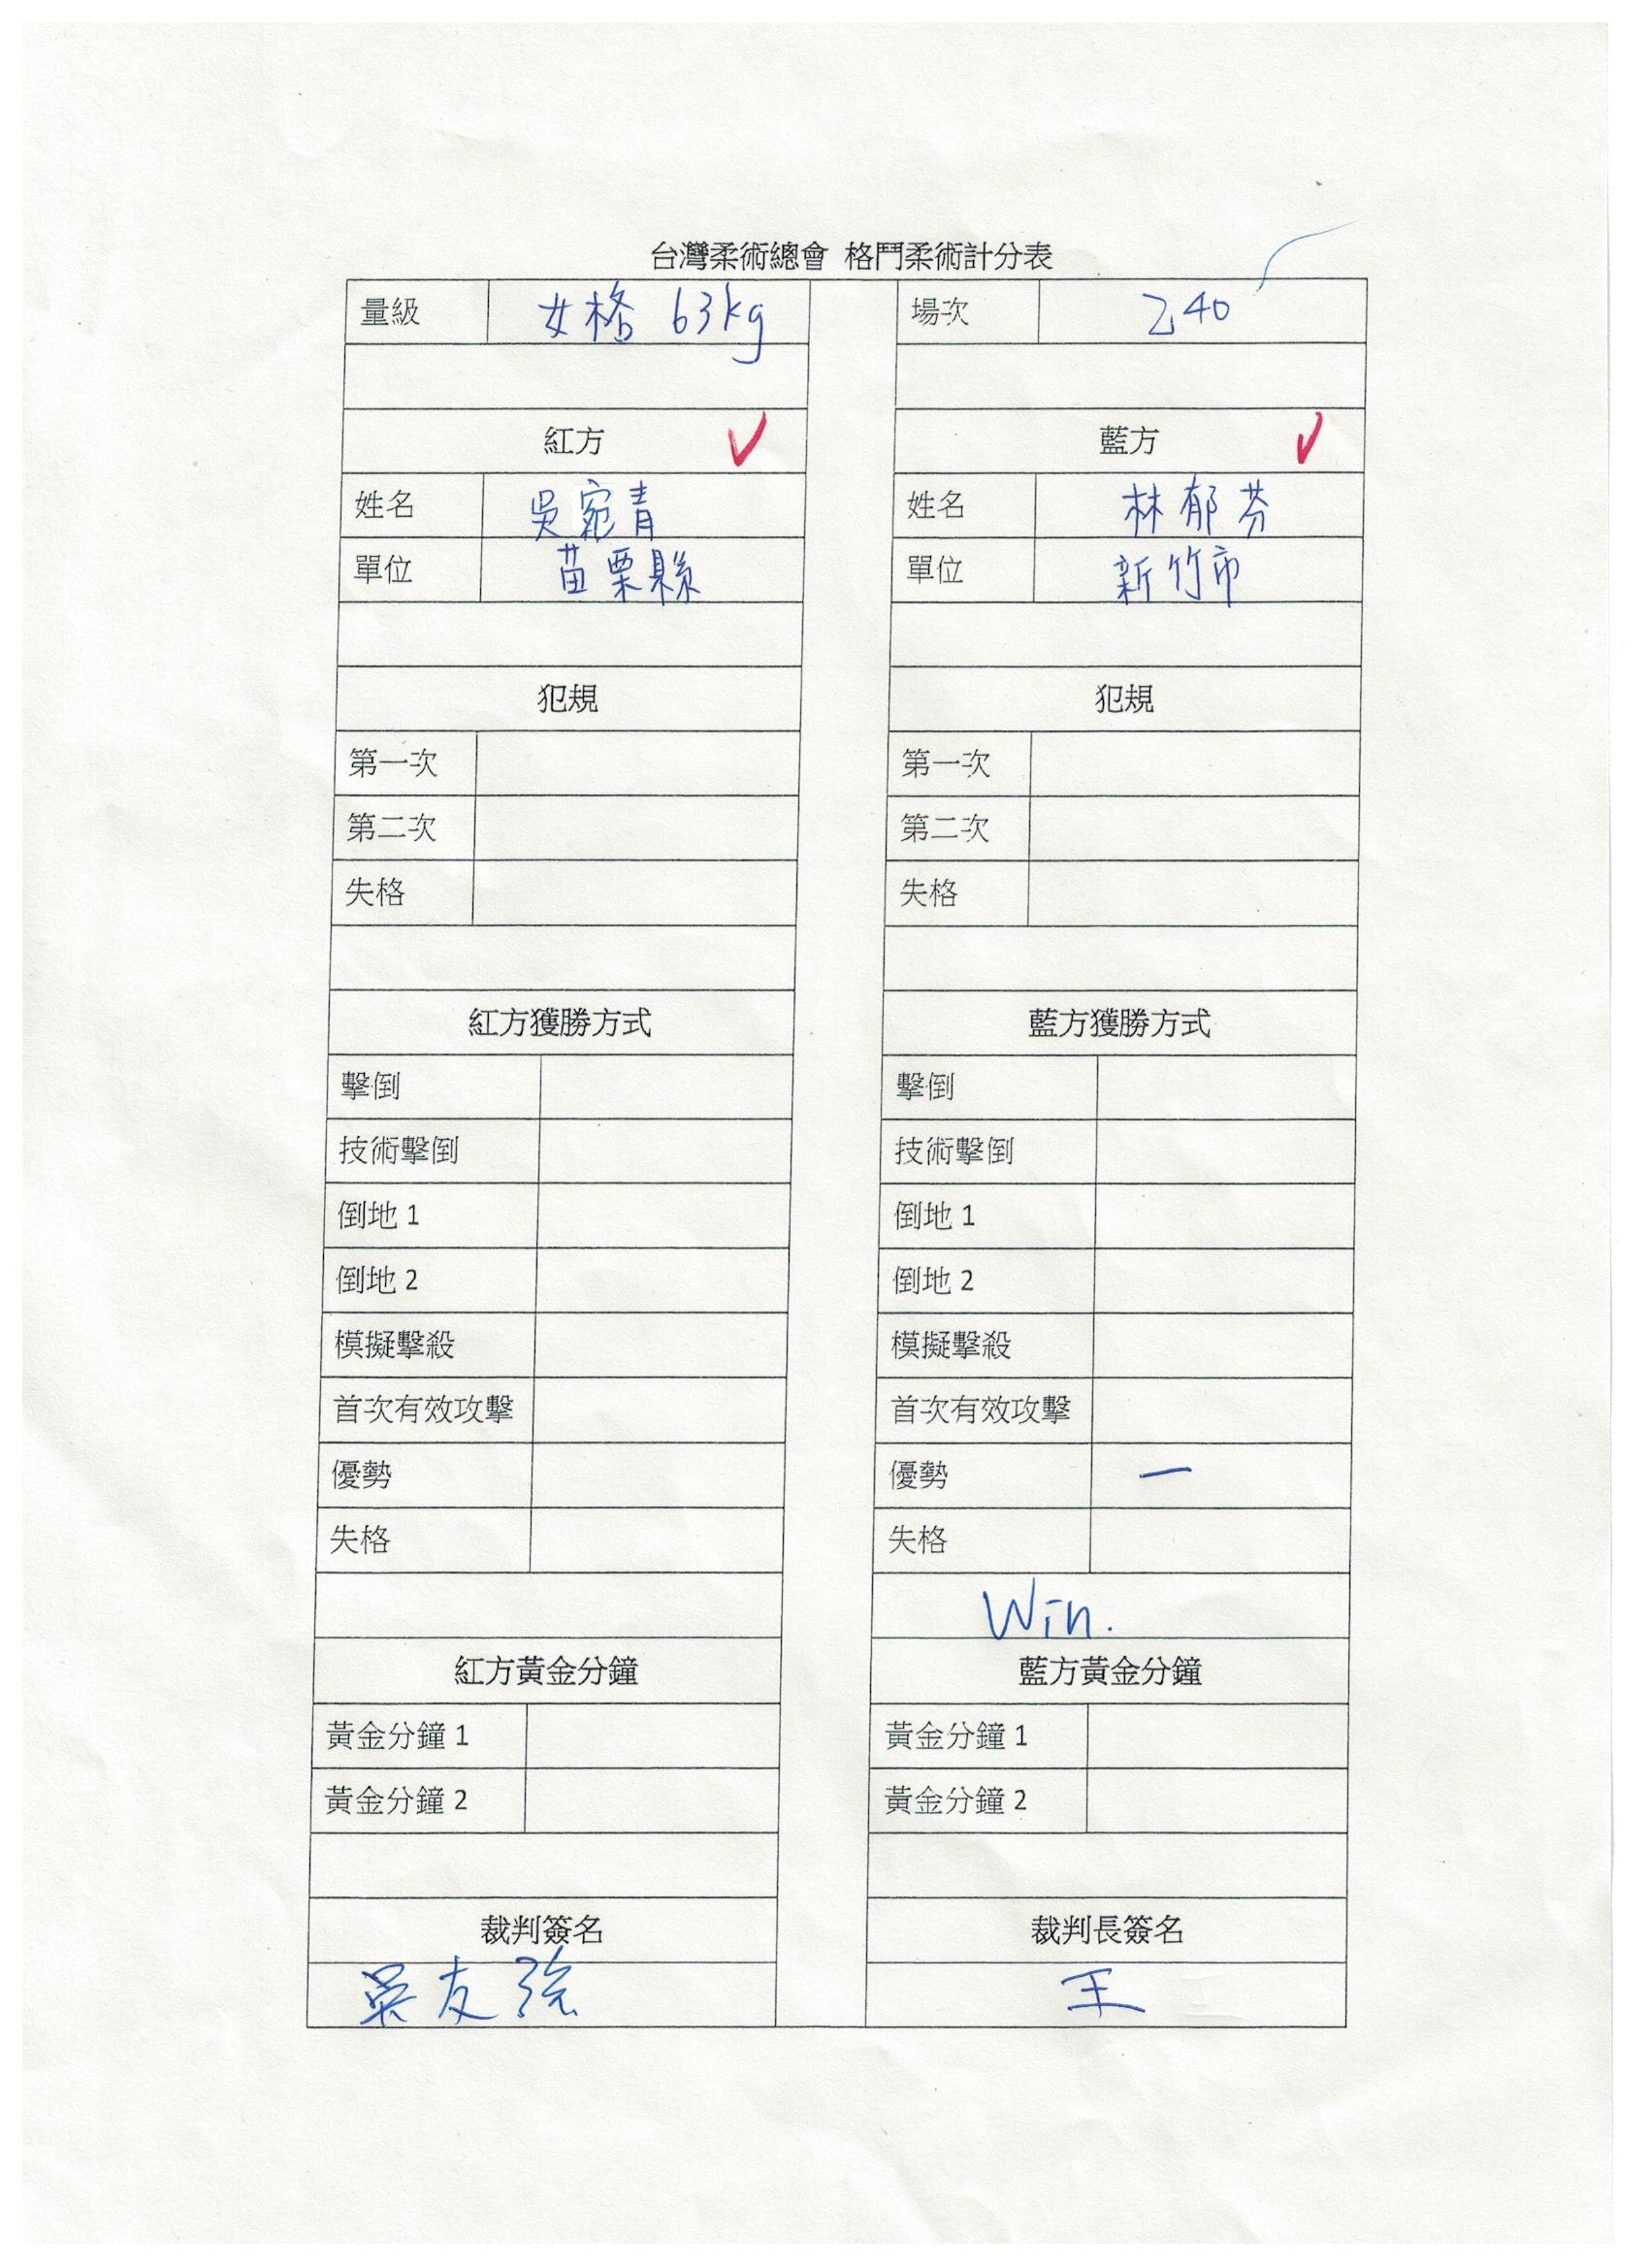 台灣柔術總會 格鬥柔術計分表
量級 女格 63kg 場次 240
紅方 藍方
姓名 吳宛青 姓名 林郁芬
單位 苗栗縣 單位 新竹市
犯規 犯規
第一次 第一次
第二次 第二次
失格 失格
紅方獲勝方式 藍方獲勝方式
擊倒 擊倒
技術擊倒 技術擊倒
倒地 1 倒地 1
倒地 2 倒地 2
模擬擊殺 模擬擊殺
首次有效攻擊 首次有效攻擊
優勢 優勢 一
失格 失格
Win.
紅方黃金分鐘 藍方黃金分鐘
黃金分鐘 1 黃金分鐘 1
黃金分鐘 2 黃金分鐘 2
裁判簽名 裁判長簽名
吳友強 王